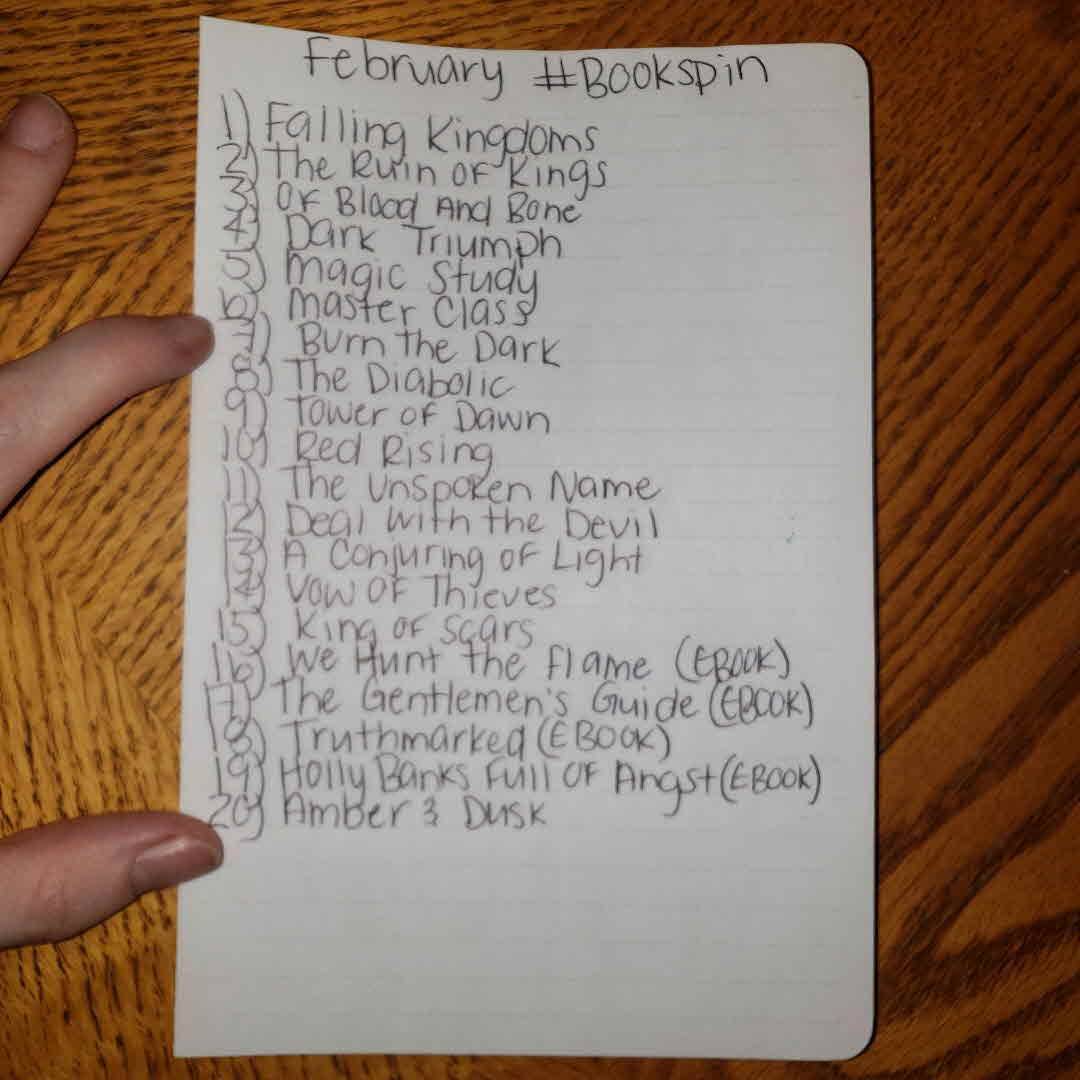 February #Bookspin
1) Falling Kingdoms
2) The Ruin of Kings
3) Of Blood And Bone
4) Dark Triumph
5) Magic Study
6) Master Class
7) Burn the Dark
8) The Diabolic
9) Tower of Dawn
10) Red Rising
11) The Unspoken Name
12) Deal with the Devil
13) A Conjuring of Light
14) Vow of Thieves
15) King of Scars
16) We Hunt the Flame (EBOOK)
17) The Gentlemen's Guide (EBOOK)
18) Truthmarked (EBOOK)
19) Holly Banks Full Of Angst (EBOOK)
20) Amber & Dusk